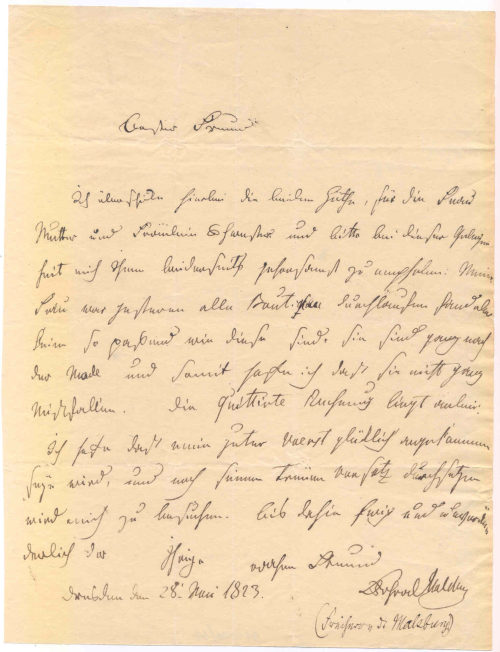 Bester Freund
Ich überschicke hierbei die beiden Hüthe, für die Frau
Mutter und Fräulein Schwester und bitte bei dieser Gelegen
heit mich Ihnen beiderseits gehorsamst zu empfehlen. Meine
Frau war gestern alle durchlaufen fand aber
keine so passend wie diese sind. sie sind ganz nach
der Mode und somit hoffe ich daß sie nicht ganz
Mißfallen. die quittirte Rechnung liegt anbei.
Ich hoffe daß mein guter glücklich angekommen
seyn wird, und nach seinem Vorsatz durchsetzen
wird mich zu besuchen. bis dahin ewig und unverän
derlich der Ihrige wahrer Freund
Dresden den 28. 1823.
(Freiherr v. d. Malsburg)